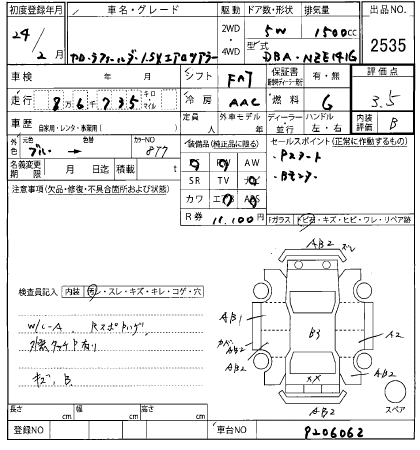 初度登録年月 車名・グレード 駆動 ドア数・形状 排気量 出品NO.
24/2月 カローラフィールダー 1.5X エアロツアラー 2WD・4WD 5W 1500cc 2535
型式 DBA-NZE141G
車検 年 月 シフト FAT 保証書 有・無 評価点
走行 8万6千735 キロ マイル 冷房 AAC 燃料 G 3.5
車歴 自家用・レンタ・事業用( ) 定員 人 外車モデル 年 ディーラー 並行 ハンドル 左・右 内装評価 B
外色 元色 ブルー → 色替 カラーNO 8T7 装備品(純正品に限る) セールスポイント(正常に作動するもの)
名義変更期限 月 日迄 積載 t SR TV ナビ ・Pスタート
注意事項(欠品・修復・不具合箇所および状態) カワ エアB ABS
R券 11,100円
「ガラス トビ石・キズ・ヒビ・ワレ・リペア跡
AB2 ズレ
検査員記入 内装 汚レ・スレ・キズ・キレ・コゲ・穴
W/L-A
AB1 B3 A2
AB2
AB2 AB2
キズ、B
XX
AB2 スペア
長さ cm 幅 cm 高さ cm
登録NO 車台NO 9206062